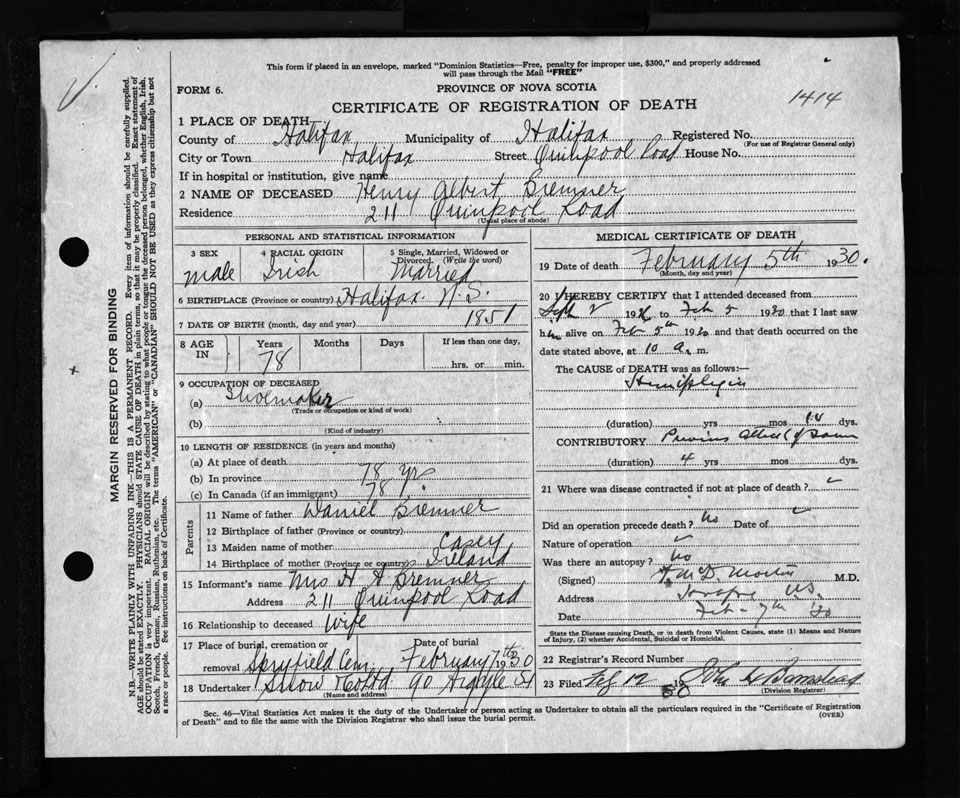 This form if placed in an envelope, marked "Dominion Statistics—Free, penalty for improper use, $300," and properly addressed
will pass through the Mail "FREE"
FORM 6.
PROVINCE OF NOVA SCOTIA
CERTIFICATE OF REGISTRATION OF DEATH
1414
1 PLACE OF DEATH
County of Halifax Municipality of Halifax Registered No.
(For use of Registrar General only)
City or Town Halifax Street Quinpool Road House No.
If in hospital or institution, give name
2 NAME OF DECEASED Henry Albert Bremner
Residence 211 Quinpool Road
(Usual place of abode)
PERSONAL AND STATISTICAL INFORMATION
3 SEX 4 RACIAL ORIGIN 5 Single, Married, Widowed or
Divorced. (Write the word)
male Irish Married
6 BIRTHPLACE (Province or country) Halifax. N.S.
7 DATE OF BIRTH (month, day and year) 1851
8 AGE IN Years Months Days If less than one day,
78 hrs. or min.
9 OCCUPATION OF DECEASED
(a) Shoemaker
(Trade or occupation or kind of work)
(b)
(Kind of industry)
10 LENGTH OF RESIDENCE (in years and months)
(a) At place of death
(b) In province 78 Yrs
(c) In Canada (if an immigrant) 78 "
Parents
11 Name of father Daniel Bremner
12 Birthplace of father (Province or country)
13 Maiden name of mother Casey
14 Birthplace of mother (Province or country) Ireland
15 Informant's name Mrs H A Bremner
Address 211 Quinpool Road
16 Relationship to deceased Wife
17 Place of burial, cremation or Date of burial
removal Spryfield Cem February 7th 1930
18 Undertaker Snow Co Ltd 90 Argyle St
(Name and address)
MEDICAL CERTIFICATE OF DEATH
19 Date of death February 5th 1930.
(Month, day and year)
20 I HEREBY CERTIFY that I attended deceased from
Sept 2 192 to Feb 5 1930 that I last saw
him alive on Feb 5th 1930 and that death occurred on
date stated above, at 10 a. m.
The CAUSE of DEATH was as follows:—
Hemiplegia
(duration) yrs mos dys.
CONTRIBUTORY Previous attack of same
(duration) 4 yrs mos dys.
21 Where was disease contracted if not at place of death?
Did an operation precede death? No Date of
Nature of operation
Was there an autopsy? No
(Signed) M.D.
Address N.S.
Date Feb - 7th '30
State the Disease causing Death, or in death from Violent Causes, state (1) Means and Nature
of Injury, (2) whether Accidental, Suicidal or Homicidal.
22 Registrar's Record Number
23 Filed Feb 12 1930 John H Barnstead
(Division Registrar)
Sec. 46—Vital Statistics Act makes it the duty of the Undertaker or person acting as Undertaker to obtain all the particulars required in the "Certificate of Registration
of Death" and to file the same with the Division Registrar who shall issue the burial permit.
(OVER)
MARGIN RESERVED FOR BINDING
N.B.—WRITE PLAINLY WITH UNFADING INK—THIS IS A PERMANENT RECORD. Every item of information should be carefully supplied.
AGE should be stated EXACTLY. PHYSICIANS should STATE CAUSE OF DEATH in plain terms, so that it may be properly classified. Exact statement of
OCCUPATION is very important. RACIAL ORIGIN will be described by stating to what people or tongue the deceased person belonged, whether English, Irish,
Scotch, French, German, Russian, Ruthenian, etc. The terms "AMERICAN" or "CANADIAN" SHOULD NOT BE USED as they express citizenship but not
a race or people. See instructions on back of Certificate.